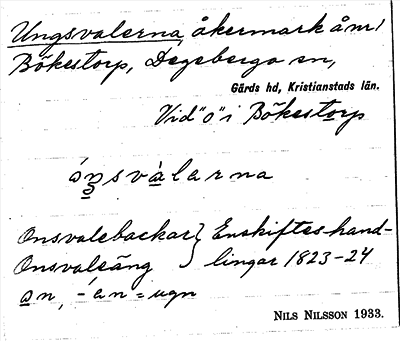 Ungsvalerna, åkermark å m/
Bökestorp, Degeberga sn,
Gärds hd, Kristianstads län.
Vid "o" i Bökestorp
ȯŋsvàlarna
Onsvalebackar } Enskifteshand-
Onsvalsäng } lingar 1823-24
on, -en = ugn
NILS NILSSON 1933.